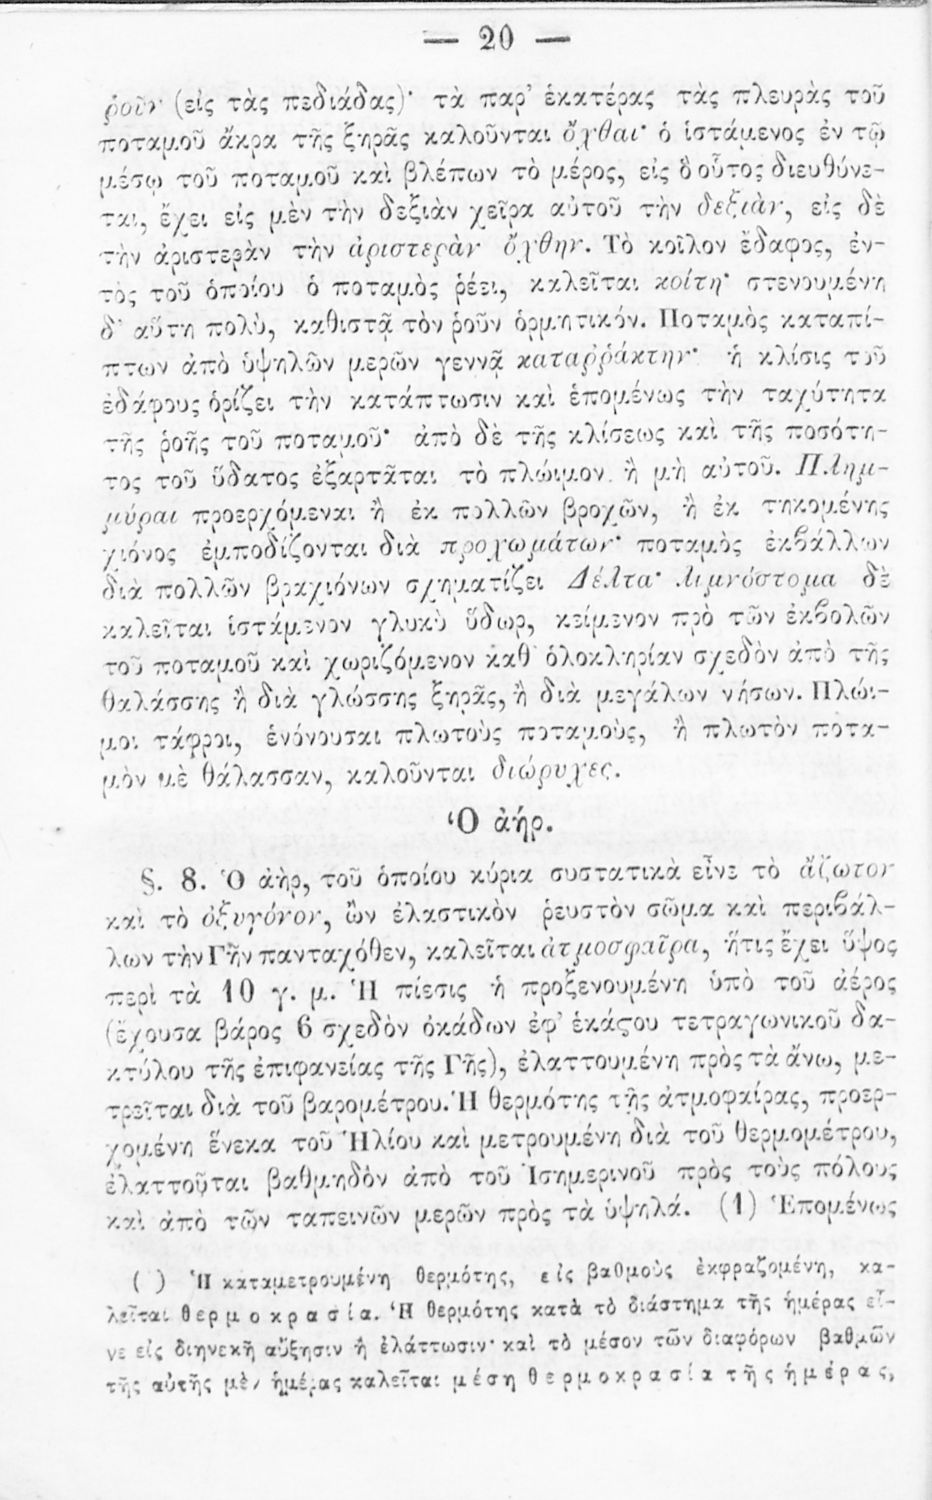 — 20 —
ῥοῦν (εἰς τὰς πεδιάδας)· τὰ παρ' ἑκατέρας τὰς πλευρὰς τοῦ
ποταμοῦ ἄκρα τῆς ξηρᾶς καλοῦνται ὄχθαι· ὁ ἱστάμενος ἐν τῷ
μέσῳ τοῦ ποταμοῦ καὶ βλέπων τὸ μέρος, εἰς ὃ οὗτος διευθύνε-
ται, ἔχει εἰς μὲν τὴν δεξιὰν χεῖρα αὐτοῦ τὴν δεξιὰν, εἰς δὲ
τὴν ἀριστερὰν τὴν ἀριστερὰν ὄχθην. Τὸ κοῖλον ἔδαφος, ἐν-
τὸς τοῦ ὁποίου ὁ ποταμὸς ῥέει, καλεῖται κοίτη· στενουμένη
δ' αὕτη πολὺ, καθιστᾷ τὸν ῥοῦν ὁρμητικόν. Ποταμὸς καταπί-
πτων ἀπὸ ὑψηλῶν μερῶν γεννᾷ καταῤῥάκτην· ἡ κλίσις τοῦ
ἐδάφους ὁρίζει τὴν κατάπτωσιν καὶ ἑπομένως τὴν ταχύτητα
τῆς ῥοῆς τοῦ ποταμοῦ· ἀπὸ δὲ τῆς κλίσεως καὶ τῆς ποσότη-
τος τοῦ ὕδατος ἐξαρτᾶται τὸ πλώιμον ἢ μὴ αὐτοῦ. Πλημ-
μύραι προερχόμεναι ἢ ἐκ πολλῶν βροχῶν, ἢ ἐκ τηκομένης
χιόνος ἐμποδίζονται διὰ προχωμάτων· ποταμὸς ἐκβάλλων
διὰ πολλῶν βραχιόνων σχηματίζει Δέλτα· λιμνόστομα δὲ
καλεῖται ἱστάμενον γλυκὺ ὕδωρ, κείμενον πρὸ τῶν ἐκβολῶν
τοῦ ποταμοῦ καὶ χωριζόμενον καθ' ὁλοκληρίαν σχεδὸν ἀπὸ τῆς
θαλάσσης ἢ διὰ γλώσσης ξηρᾶς, ἢ διὰ μεγάλων νήσων. Πλώι-
μοι τάφροι, ἑνόνουσαι πλωτοὺς ποταμοὺς, ἢ πλωτὸν ποτα-
μὸν μὲ θάλασσαν, καλοῦνται διώρυχες.
Ὁ ἀήρ.
§. 8. Ὁ ἀὴρ, τοῦ ὁποίου κύρια συστατικὰ εἶνε τὸ ἄζωτον
καὶ τὸ ὀξυγόνον, ὢν ἐλαστικὸν ῥευστὸν σῶμα καὶ περιβάλ-
λων τὴν Γῆν πανταχόθεν, καλεῖται ἀτμοσφαῖρα, ἥτις ἔχει ὕψος
περὶ τὰ 10 γ. μ. Ἡ πίεσις ἡ προξενουμένη ὑπὸ τοῦ ἀέρος
(ἔχουσα βάρος 6 σχεδὸν ὀκάδων ἐφ' ἑκάςου τετραγωνικοῦ δα-
κτύλου τῆς ἐπιφανείας τῆς Γῆς), ἐλαττουμένη πρὸς τὰ ἄνω, με-
τρεῖται διὰ τοῦ βαρομέτρου. Ἡ θερμότης τῆς ἀτμοφαίρας, προερ-
χομένη ἕνεκα τοῦ Ἡλίου καὶ μετρουμένη διὰ τοῦ θερμομέτρου,
ἐλαττοῦται βαθμηδὸν ἀπὸ τοῦ Ἰσημερινοῦ πρὸς τοὺς πόλους
καὶ ἀπὸ τῶν ταπεινῶν μερῶν πρὸς τὰ ὑψηλά. (1) Ἑπομένως
( ) Ἡ καταμετρουμένη θερμότης, εἰς βαθμοὺς ἐκφραζομένη, κα-
λεῖται θερμοκρασία. Ἡ θερμότης κατὰ τὸ διάστημα τῆς ἡμέρας εἶ-
νε εἰς διηνεκῆ αὔξησιν ἢ ἐλάττωσιν· καὶ τὸ μέσον τῶν διαφόρων βαθμῶν
τῆς αὐτῆς μὲν ἡμέρας καλεῖται μέση θερμοκρασία τῆς ἡμέρας,